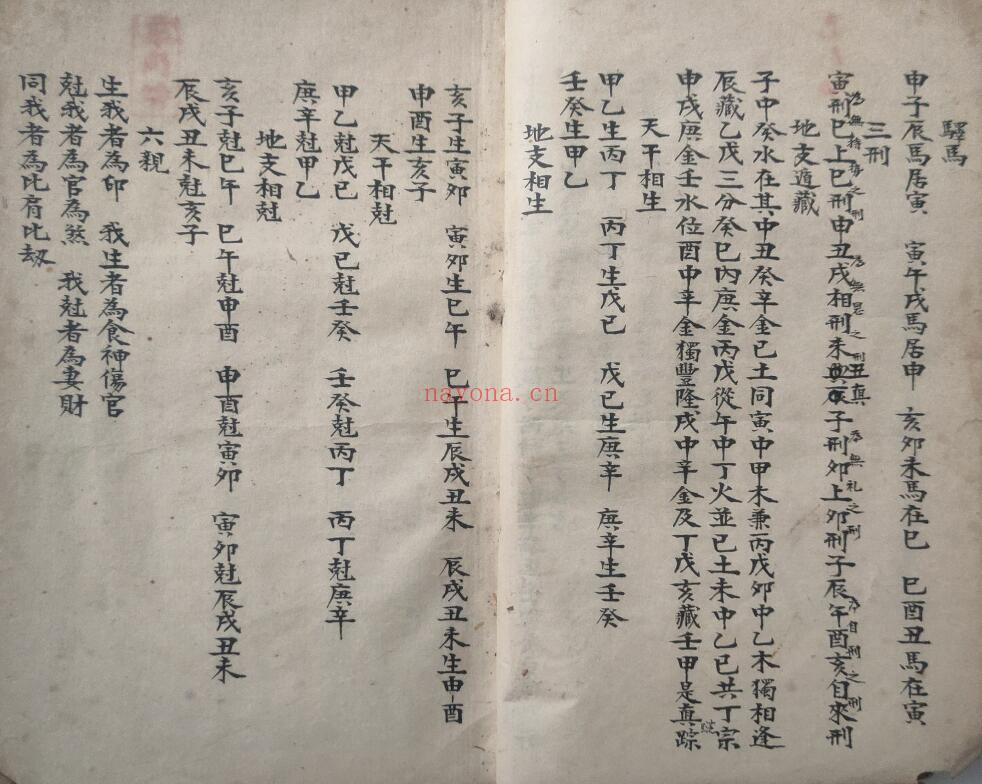 驛馬
申子辰馬居寅　寅午戌馬居申　亥夘未馬在巳　巳酉丑馬在寅
三刑
寅刑巳上巳刑申丑戌相刑未與求子刑夘上夘刑子辰午酉亥自來刑
為無持勢之刑
為無恩之刑
丑真
為無礼之刑
為自刑之刑
地支遁藏
子中癸水在其中丑癸辛金己土同寅中甲木兼丙戊夘中乙木獨相逢
辰藏乙戊三分癸巳內庚金丙戊從午中丁火並己土未中乙己共丁宗
申戌庚金壬水位酉中辛金獨豐隆戌中辛金及丁戊亥藏壬甲是真踪
天干相生
甲乙生丙丁　丙丁生戊己　戊己生庚辛　庚辛生壬癸
壬癸生甲乙
地支相生
亥子生寅夘　寅夘生巳午　巳午生辰戌丑未　辰戌丑未生申酉
申酉生亥子
天干相尅
甲乙尅戊己　戊己尅壬癸　壬癸尅丙丁　丙丁尅庚辛
庚辛尅甲乙
地支相尅
亥子尅巳午　巳午尅申酉　申酉尅寅夘　寅夘尅辰戌丑未
辰戌丑未尅亥子
六親
生我者為印　我生者為食神傷官
尅我者為官為煞　我尅者為妻財
同我者為比肩比劫
nayona.cn